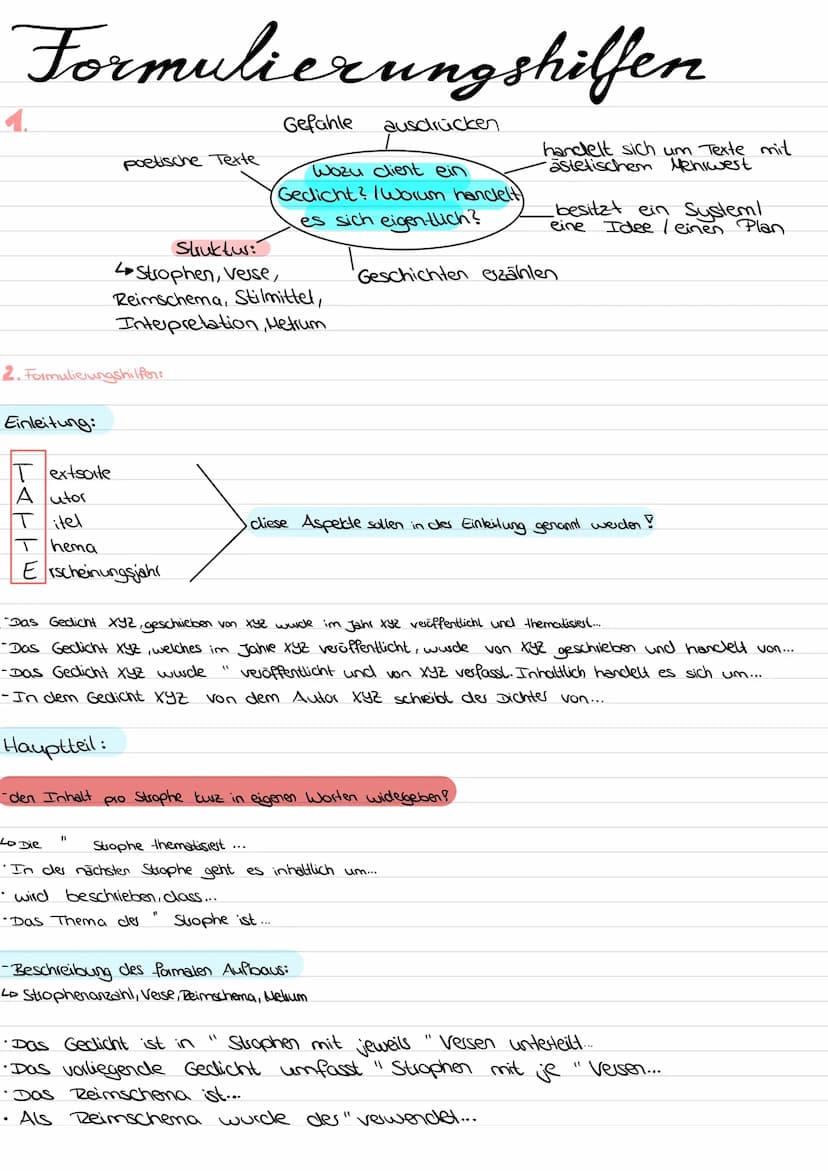 Formulierungshilfen
1.
Gefühle ausdrücken
poetische Texte
handelt sich um Texte mit
ästetischem Mehrwert
Wozu dient ein
Gedicht? / Worum handelt
es sich eigentlich?
besitzt ein System/
eine Idee / einen Plan
Struktur:
↳ Strophen, Verse,
Reimschema, Stilmittel,
Interpretation, Metrum
Geschichten erzählen
2. Formulierungshilfen:
Einleitung:
Textsorte
Autor
Titel
Thema
Erscheinungsjahr
diese Aspekte sollen in der Einleitung genannt werden!
-Das Gedicht XYZ, geschrieben von XYZ wurde im Jahr XYZ veröffentlicht und thematisiert...
-Das Gedicht XYZ, welches im Jahre XYZ veröffentlicht, wurde von XYZ geschrieben und handelt von...
-Das Gedicht XYZ wurde " veröffentlicht und von XYZ verfasst. Inhaltlich handelt es sich um...
-In dem Gedicht XYZ von dem Autor XYZ schreibt der Dichter von...
Hauptteil:
-den Inhalt pro Strophe kurz in eigenen Worten widergeben!
↳ Die " Strophe thematisiert ...
· In der nächsten Strophe geht es inhaltlich um...
· wird beschrieben, dass...
· Das Thema der " Strophe ist...
-Beschreibung des formalen Aufbaus:
↳ Strophenanzahl, Verse, Reimschema, Metrum
· Das Gedicht ist in " Strophen mit jeweils " Versen unterteilt...
· Das vorliegende Gedicht umfasst " Strophen mit je " Versen...
· Das Reimschema ist...
· Als Reimschema wurde der " verwendet...